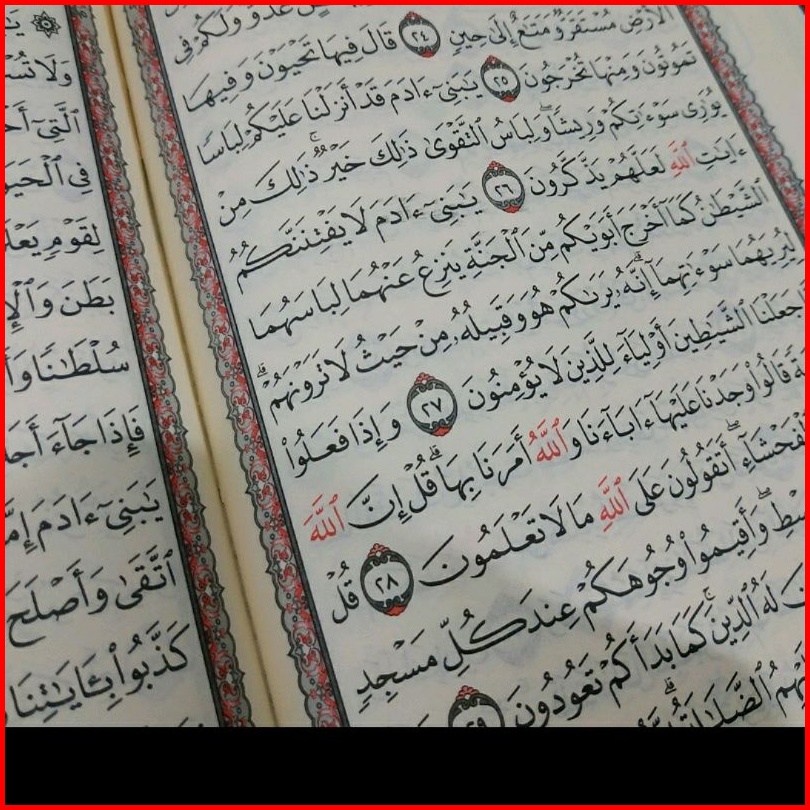 عَدُوٌّ وَلَكُمْ فِي
ٱلْأَرْضِ مُسْتَقَرٌّ وَمَتَٰعٌ إِلَىٰ حِينٍ ٢٤ قَالَ فِيهَا تَحْيَوْنَ وَفِيهَا
تَمُوتُونَ وَمِنْهَا تُخْرَجُونَ ٢٥ يَٰبَنِيٓ ءَادَمَ قَدْ أَنزَلْنَا عَلَيْكُمْ لِبَاسًا
يُوَٰرِي سَوْءَٰتِكُمْ وَرِيشًاۖ وَلِبَاسُ ٱلتَّقْوَىٰ ذَٰلِكَ خَيْرٌۚ ذَٰلِكَ مِنْ
ءَايَٰتِ ٱللَّهِ لَعَلَّهُمْ يَذَّكَّرُونَ ٢٦ يَٰبَنِيٓ ءَادَمَ لَا يَفْتِنَنَّكُمُ
ٱلشَّيْطَٰنُ كَمَآ أَخْرَجَ أَبَوَيْكُم مِّنَ ٱلْجَنَّةِ يَنزِعُ عَنْهُمَا لِبَاسَهُمَا
لِيُرِيَهُمَا سَوْءَٰتِهِمَآۚ إِنَّهُۥ يَرَىٰكُمْ هُوَ وَقَبِيلُهُۥ مِنْ حَيْثُ لَا تَرَوْنَهُمْۗ
جَعَلْنَا ٱلشَّيَٰطِينَ أَوْلِيَآءَ لِلَّذِينَ لَا يُؤْمِنُونَ ٢٧ وَإِذَا فَعَلُوا۟
قَالُوا۟ وَجَدْنَا عَلَيْهَآ ءَابَآءَنَا وَٱللَّهُ أَمَرَنَا بِهَاۗ قُلْ إِنَّ ٱللَّهَ
ٱلْفَحْشَآءِۖ أَتَقُولُونَ عَلَى ٱللَّهِ مَا لَا تَعْلَمُونَ ٢٨ قُلْ
وَأَقِيمُوا۟ وُجُوهَكُمْ عِندَ كُلِّ مَسْجِدٍ
لَهُ ٱلدِّينَۚ كَمَا بَدَأَكُمْ تَعُودُونَ ٢٩
ٱلضَّلَٰلَةُۗ
وَلَا
ٱلَّتِيٓ
فِي
لِقَوْمٍ
بَطَنَ
سُلْطَٰنًا
فَإِذَا جَآءَ
يَٰبَنِيٓ ءَادَمَ
ٱتَّقَىٰ وَأَصْلَحَ
كَذَّبُوا۟ بِـَٔايَٰتِنَا